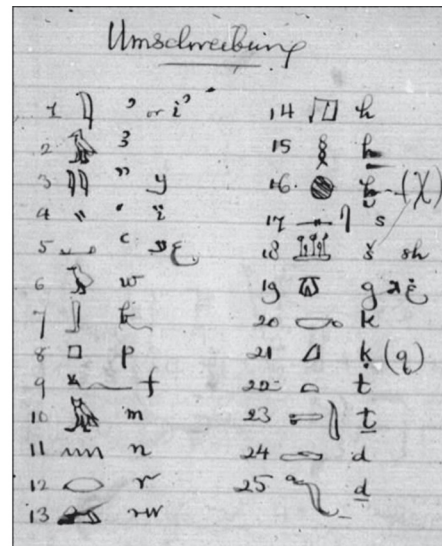 Umschreibung
1 ’ or i’
2 ꜣ
3 " y
4 " ' ï
5 c
6 w
7 b
8 p
9 f
10 m
11 n
12 r
13 rw
14 h
15 ḥ
16 ḫ (χ)
17 s
18 š sh
19 g
20 k
21 ḳ (q)
22 t
23 ṯ
24 d
25 ḏ